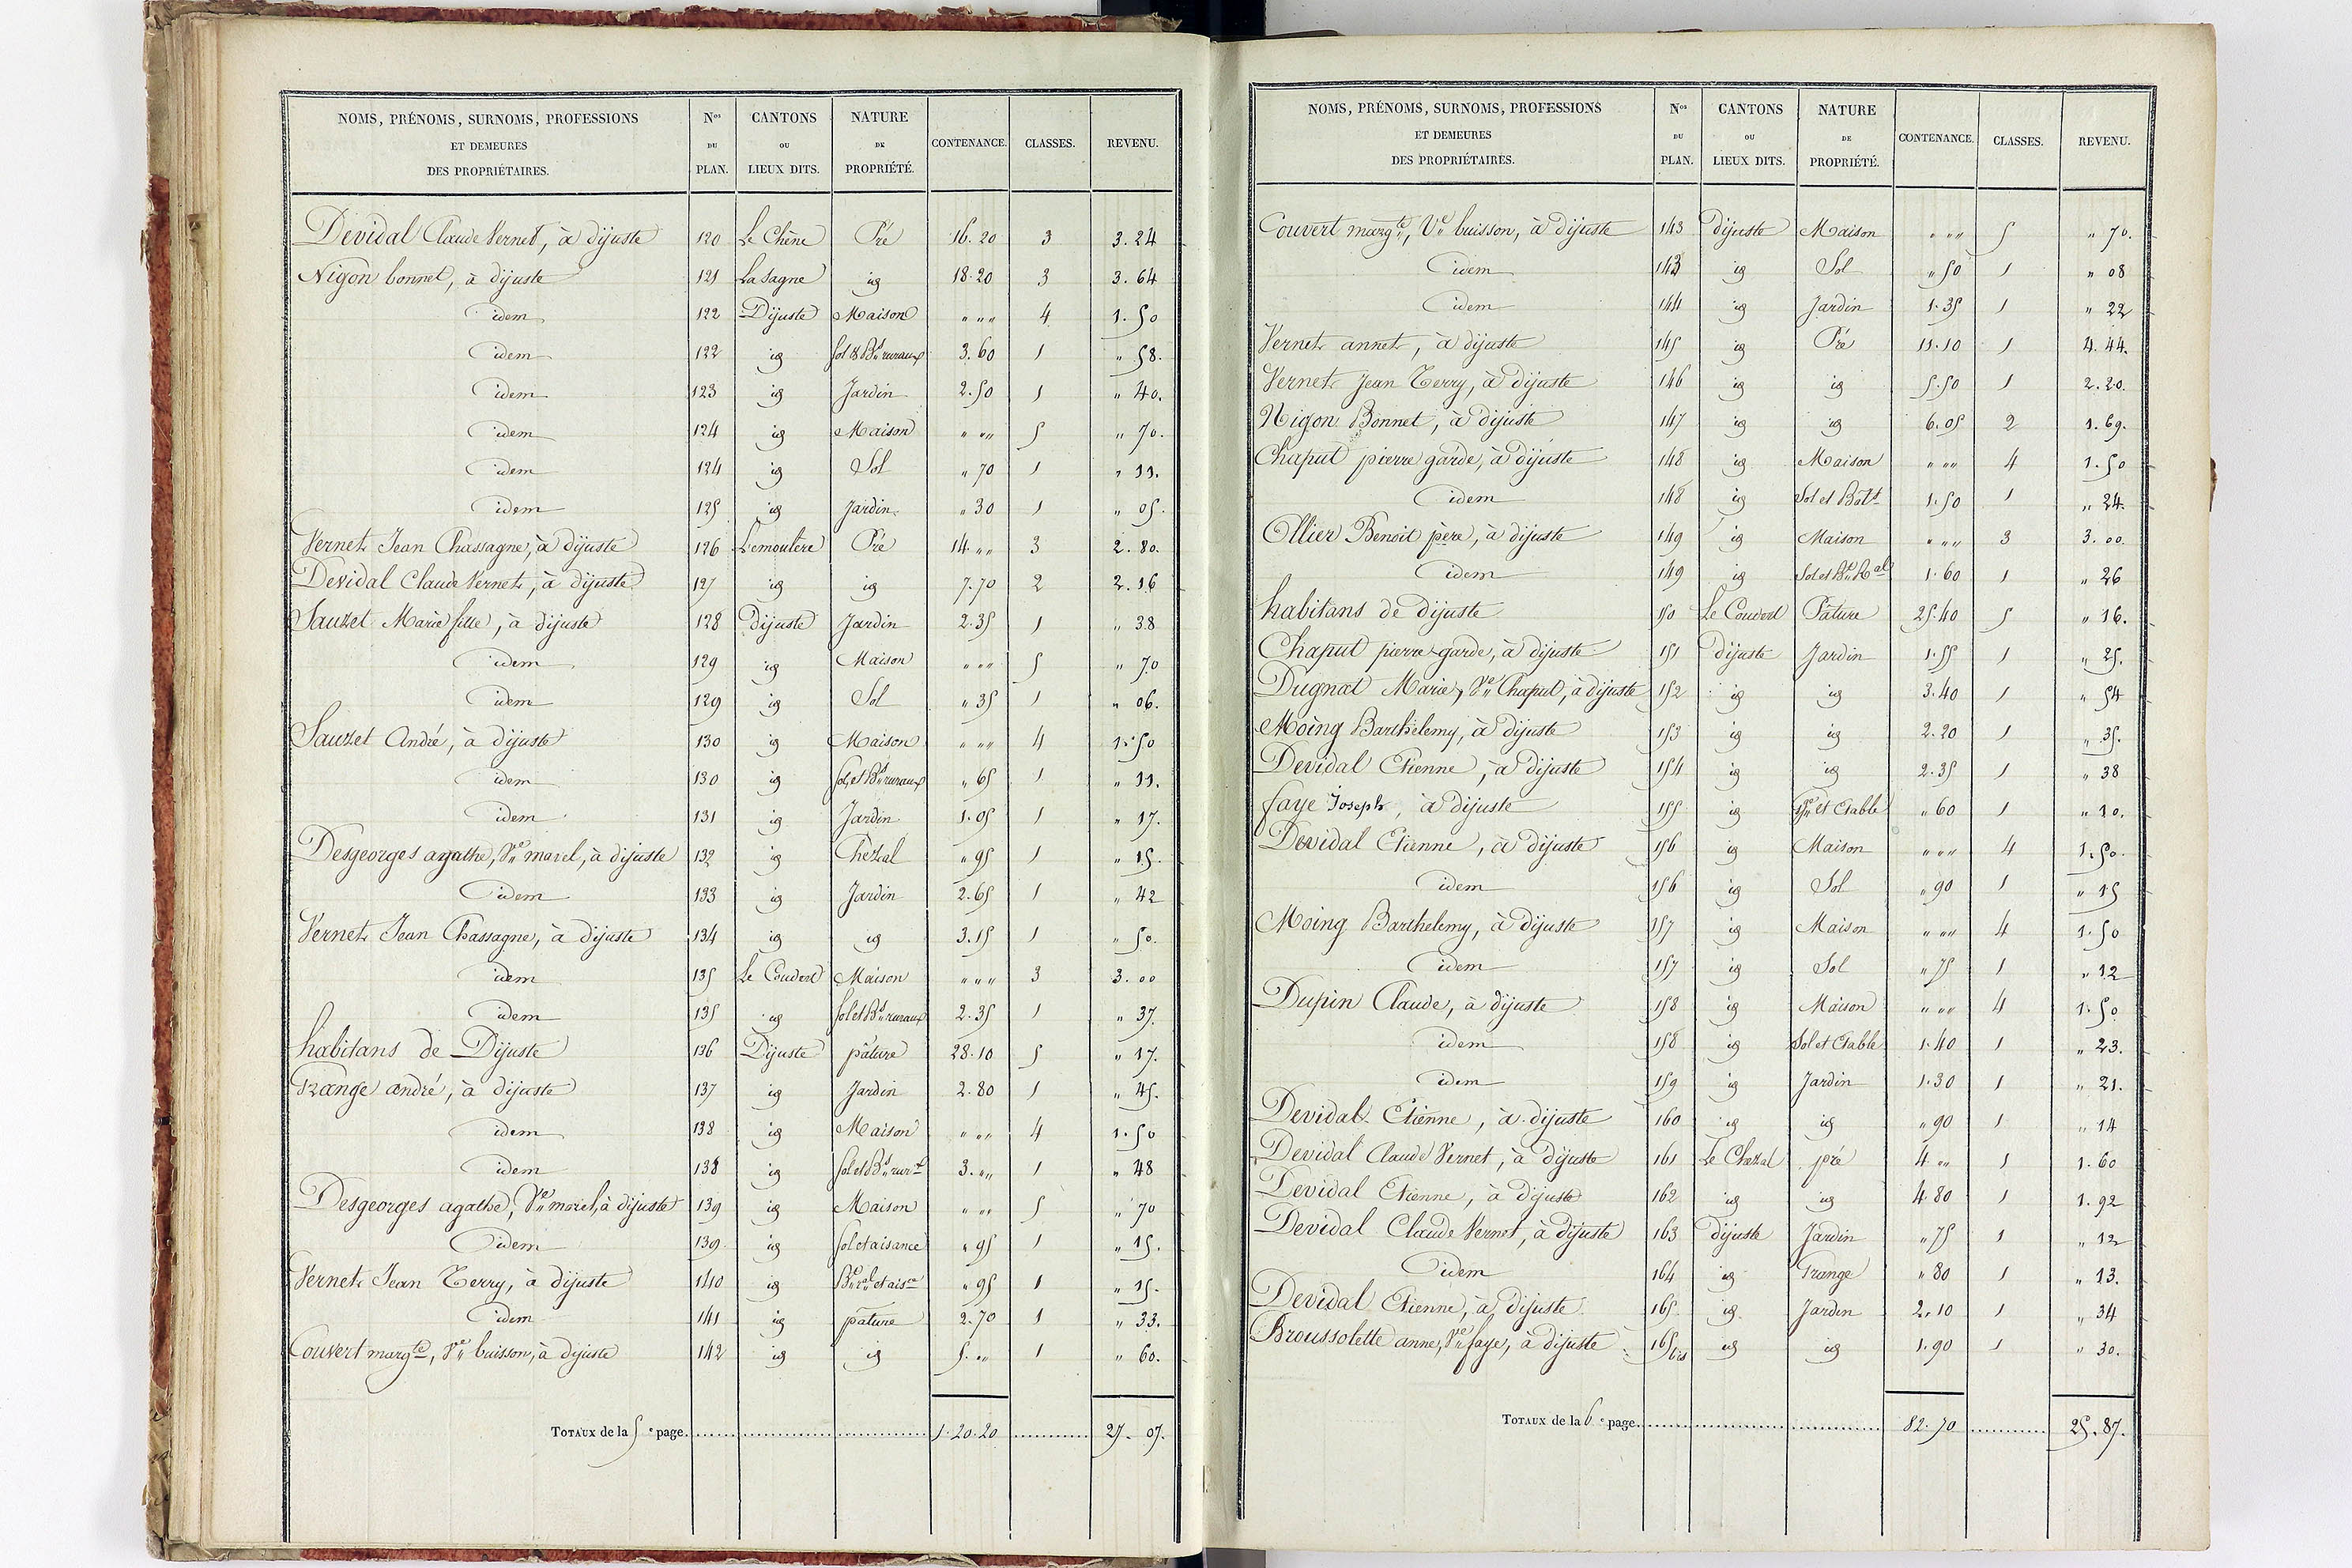 NOMS, PRÉNOMS, SURNOMS, PROFESSIONS ET DEMEURES DES PROPRIÉTAIRES. Nos DU PLAN. CANTONS OU LIEUX DITS. NATURE DE PROPRIÉTÉ. CONTENANCE. CLASSES. REVENU.
Devidal Claude Vernet, à dijuste 120 Le Chêne Pré 16.20 3 3.24
Nigon bonnet, à dijuste 121 La Sagne id 18.20 3 3.64
idem 122 Dijuste Maison " " " 4 1.50
idem 122 id Sol & Bts ruraux 3.60 1 " 58.
idem 123 id Jardin 2.50 1 " 40.
idem 124 id Maison " " " 5 " 70.
idem 124 id Sol " 70 1 " 11.
idem 125 id Jardin " 30 1 " 05.
Vernet Jean Chassagne, à dijuste 126 Lemoulère Pré 14. " " 3 2.80.
Devidal Claude Vernet, à dijuste 127 id id 7.70 2 2.16
Sauzet Marie fille, à dijuste 128 Dijuste Jardin 2.35 1 " 38
idem 129 id Maison " " " 5 " 70
idem 129 id Sol " 35 1 " 06.
Sauzet André, à dijuste 130 id Maison " " " 4 1.50
idem 130 id Sol et Bts ruraux " 65 1 " 11.
idem 131 id Jardin 1.05 1 " 17.
Desgeorges agathe, Ve morel, à dijuste 132 id Chezal " 95 1 " 15.
idem 133 id Jardin 2.65 1 " 42
Vernet Jean Chassagne, à dijuste 134 id id 3.15 1 " 50.
idem 135 Le Couderd Maison " " " 3 3.00
idem 135 id Sol et Bts ruraux 2.35 1 " 37.
habitans de Dijuste 136 Dijuste pâture 28.10 5 " 17.
Trange andré, à dijuste 137 id Jardin 2.80 1 " 45.
idem 138 id Maison " " " 4 1.50
idem 138 id Sol et Bts rurx 3. " " 1 " 48
Desgeorges agathe, Ve morel, à dijuste 139 id Maison " " " 5 " 70
idem 139 id Sol et aisance " 95 1 " 15.
Vernet Jean Terry, à dijuste 140 id Bt ral et aisce " 95 1 " 15.
idem 141 id pâture 2.70 1 " 33.
Couvert margte, Ve buisson, à dijuste 142 id id 5. " " 1 " 60.
TOTAUX de la 5e page. 1.20.20 27.07.
NOMS, PRÉNOMS, SURNOMS, PROFESSIONS ET DEMEURES DES PROPRIÉTAIRES. Nos DU PLAN. CANTONS OU LIEUX DITS. NATURE DE PROPRIÉTÉ. CONTENANCE. CLASSES. REVENU.
Couvert margte, Ve buisson, à dijuste 143 Dijuste Maison " " " 5 " 70.
idem 143 id Sol " 50 1 " 08
idem 144 id Jardin 1.35 1 " 22
Vernet annet, à dijuste 145 id Pré 11.10 1 4.44.
Vernet Jean Terry, à dijuste 146 id id 5.50 1 2.20.
Nigon Bonnet, à dijuste 147 id id 6.05 2 1.69.
Chaput pierre garde, à dijuste 148 id Maison " " " 4 1.50
idem 148 id Sol et Bâts 1.50 1 " 24.
Ollier Benoit père, à dijuste 149 id Maison " " " 3 3.00.
idem 149 id Sol et Bt Ral 1.60 1 " 26
habitans de dijuste 150 Le Couderd Pâture 25.40 5 " 16.
Chaput pierre garde, à dijuste 151 Dijuste Jardin 1.55 1 " 25.
Dugnat Marie, Ve Chaput, à dijuste 152 id id 3.40 1 " 54
Moing Barthélemy, à dijuste 153 id id 2.20 1 " 35.
Devidal Etienne, à dijuste 154 id id 2.35 1 " 38
faye Joseph, à dijuste 155 id et Etable " 60 1 " 10.
Devidal Etienne, à dijuste 156 id Maison " " " 4 1.50.
idem 156 id Sol " 90 1 " 15
Moing Barthelemy, à dijuste 157 id Maison " " " 4 1.50
idem 157 id Sol " 75 1 " 12
Dupin Claude, à dijuste 158 id Maison " " " 4 1.50
idem 158 id Sol et Etable 1.40 1 " 23.
idem 159 id Jardin 1.30 1 " 21.
Devidal Etienne, à dijuste 160 id id " 90 1 " 14
Devidal Claude Vernet, à dijuste 161 Le Chezal pré 4 " " 1 1.60
Devidal Etienne, à dijuste 162 id id 4.80 1 1.92
Devidal Claude Vernet, à dijuste 163 Dijuste Jardin " 75 1 " 12
idem 164 id Grange " 80 1 " 13.
Devidal Etienne, à dijuste 165 id Jardin 2.10 1 " 34
Broussolette anne, Ve faye, à dijuste 165 bis id id 1.90 1 " 30.
TOTAUX de la 6e page. 82.70 25.87.